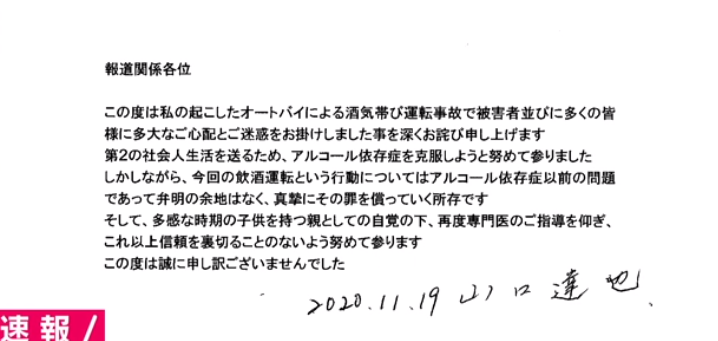 報道関係各位
この度は私の起こしたオートバイによる酒気帯び運転事故で被害者並びに多くの皆
様に多大なご心配とご迷惑をお掛けしました事を深くお詫び申し上げます
第2の社会人生活を送るため、アルコール依存症を克服しようと努めて参りました
しかしながら、今回の飲酒運転という行動についてはアルコール依存症以前の問題
であって弁明の余地はなく、真摯にその罪を償っていく所存です
そして、多感な時期の子供を持つ親としての自覚の下、再度専門医のご指導を仰ぎ、
これ以上信頼を裏切ることのないよう努めて参ります
この度は誠に申し訳ございませんでした
2020.11.19 山口達也
速報